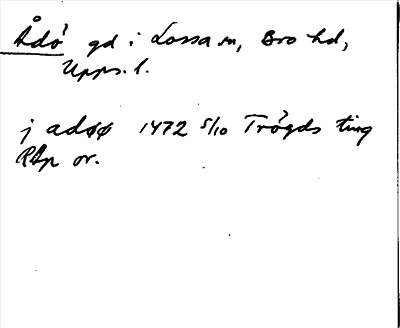 Ådö gd i Lossa sn, Bro hd,
Upps. l.
j adøø 1472 5/10 Trögds ting
RAp or.